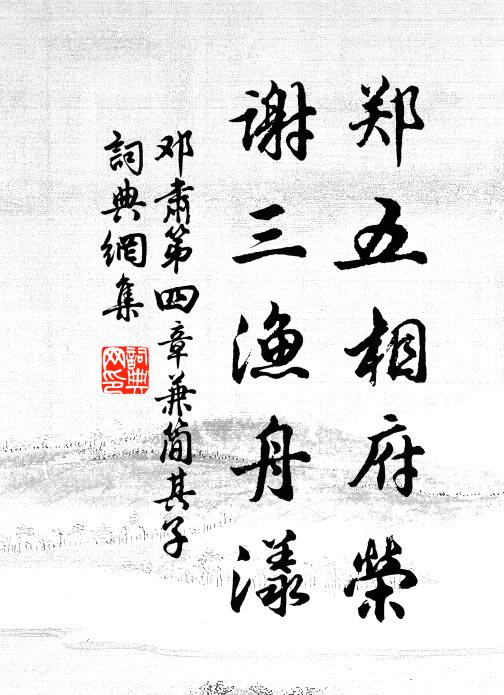 郑五相府荣
谢三渔舟漾
邓肃第四章兼简其子
詞典網集
詞典网印